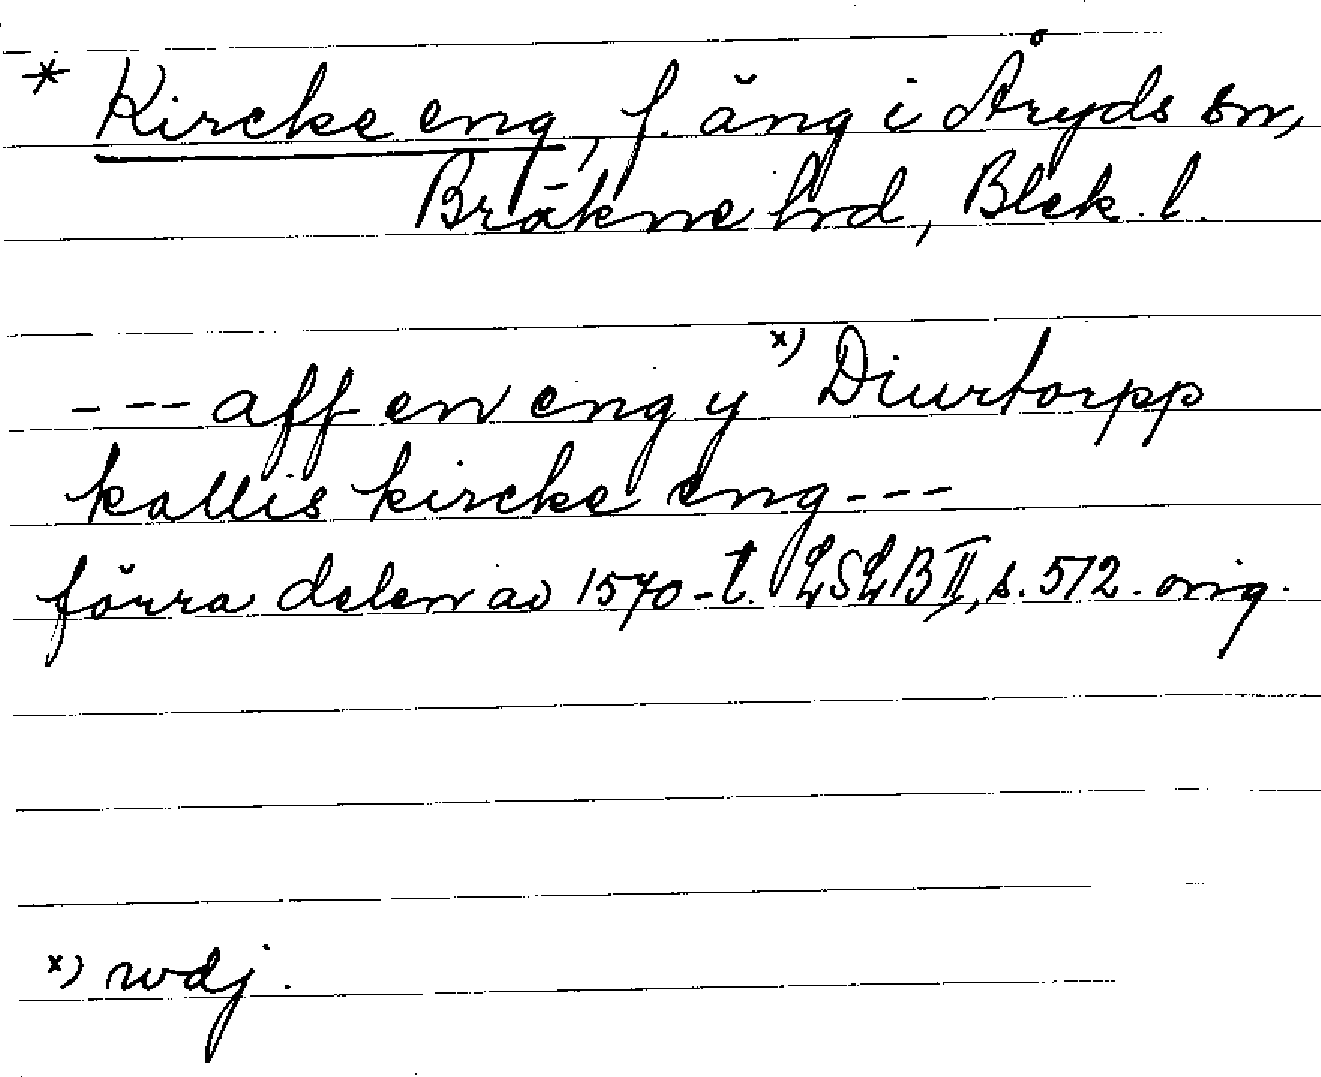 * Kircke eng, f. äng i Åryds sn,
Bräkne hd, Blek. l.
--- aff en eng y x) Diurtorpp
kallis kircke eng ---
förra delen av 1570-t. LSLB II, s. 512. orig.
x) rdj.